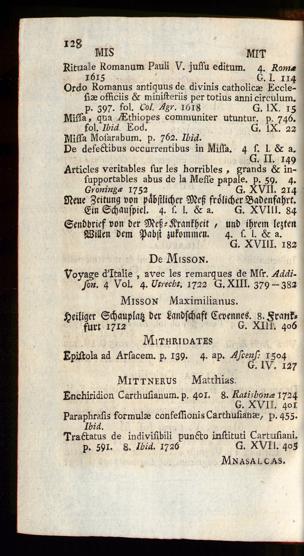 128
MIS MIT
Rituale Romanum Pauli V. jussu editum. 4. Romæ
1615 G. I. 114
Ordo Romanus antiquus de divinis catholicæ Eccle-
siæ officiis & ministeriis per totius anni circulum.
p. 397. fol. Col. Agr. 1618 G. IX. 15
Missa, qua Æthiopes communiter utuntur. p. 746.
fol. Ibid. Eod. G. IX. 22
Missa Mosarabum. p. 762. Ibid.
De defectibus occurrentibus in Missa. 4 s. l. & a.
G. II. 149
Articles veritables sur les horribles, grands & in-
supportables abus de la Messe papale. p. 59. 4.
Groningæ 1752 G. XVII. 214
Neue Zeitung von päbstlicher Meß frölicher Badenfahrt.
Ein Schauspiel. 4. s. l. & a. G. XVIII. 84
Sendbrief von der Meß-Krankheit, und ihrem letzten
Willen dem Pabst zukommen. 4. s. l. & a.
G. XVIII. 182
De Misson.
Voyage d'Italie, avec les remarques de Msr. Addi-
son. 4 Vol. 4. Utrecht. 1722 G. XIII. 379-382
Misson Maximilianus.
Heiliger Schauplatz der Landschaft Cevennes. 8. Frank-
furt 1712 G. XIII. 406
Mithridates
Epistola ad Arsacem. p. 139. 4. ap. Ascens: 1504
G. IV. 127
Mittnerus Matthias.
Enchiridion Carthusianum. p. 401. 8. Ratisbonæ 1724
G. XVII. 401
Paraphrasis formulæ confessionis Carthusianæ, p. 455.
Ibid.
Tractatus de indivisibili puncto instituti Cartusiani.
p. 591. 8. Ibid. 1726 G. XVII. 405
Mnasalcas.